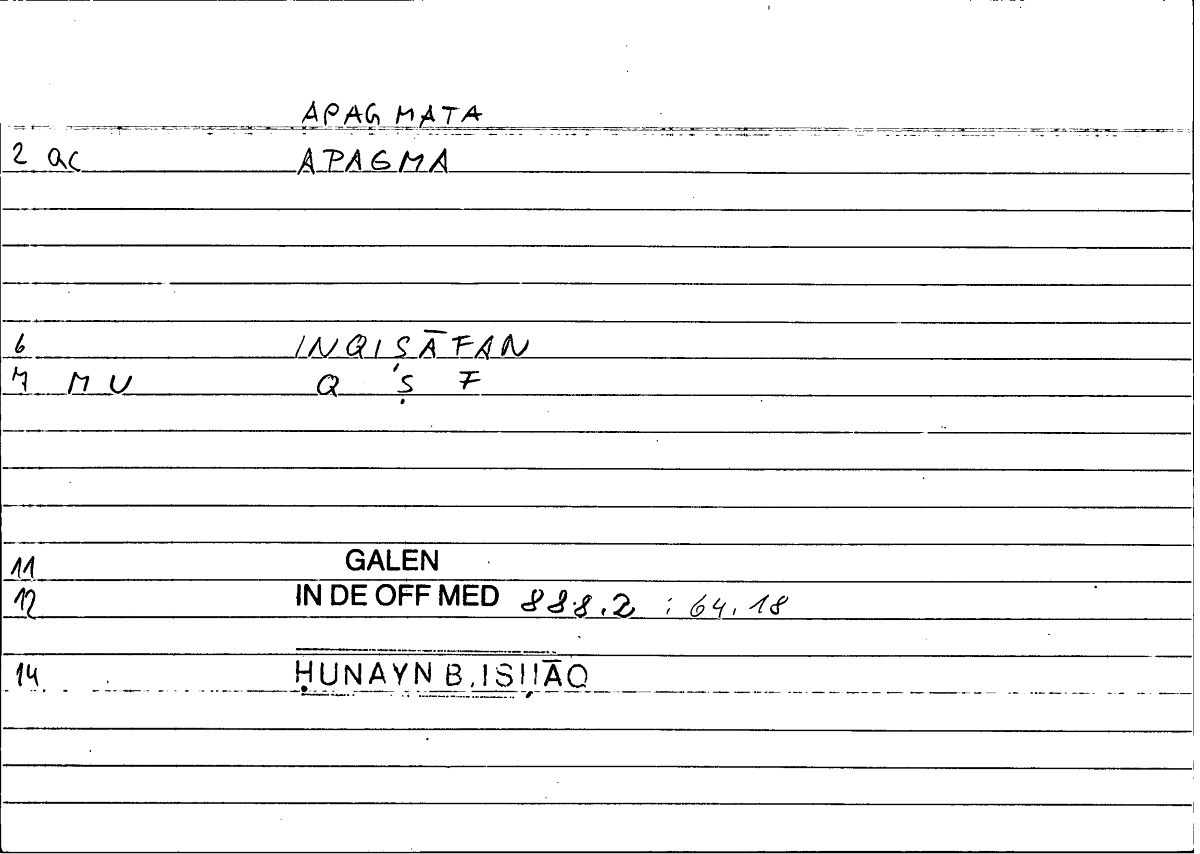 APAGMATA
2 ac APAGMA
6 INQIṢĀFAN
7 MU Q Ṣ F
11 GALEN
12 IN DE OFF MED 888.2 : 64.18
14 ḤUNAYN B. ISḤĀQ